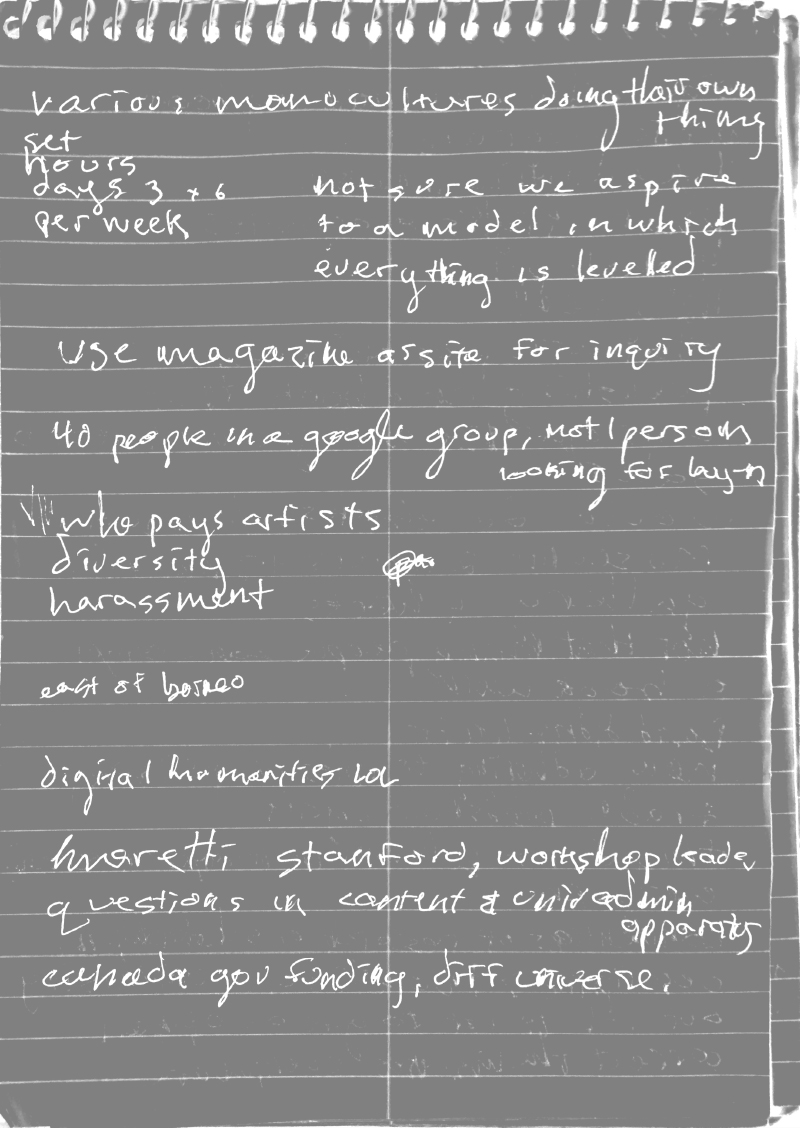 various monocultures doing their own
thing
set
hours
days 3 + 6
per week
not sure we aspire
to a model in which
everything is leveled
use magazine as site for inquiry
40 people in a google group, not 1 person
looking for
who pays artists
diversity
harassment
east of borneo
digital humanities LA
moretti stanford, workshop leader
questions in content & univ admin
apparatus
canada gov funding, diff universe.